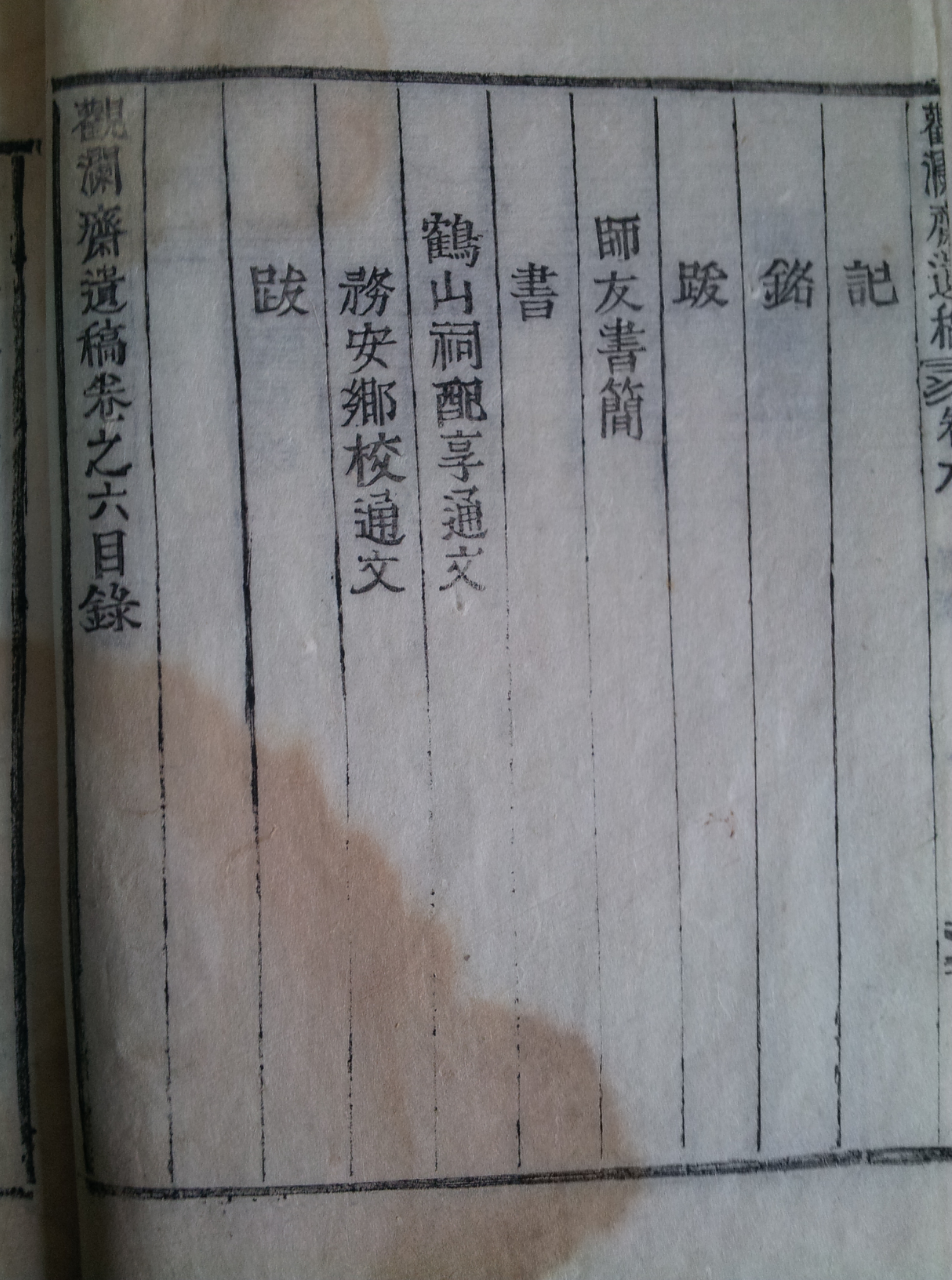 記
銘
跋
師友書簡
書
鶴山祠配享通文
務安鄉校通文
跋
觀瀾齋遺稿卷之六目錄